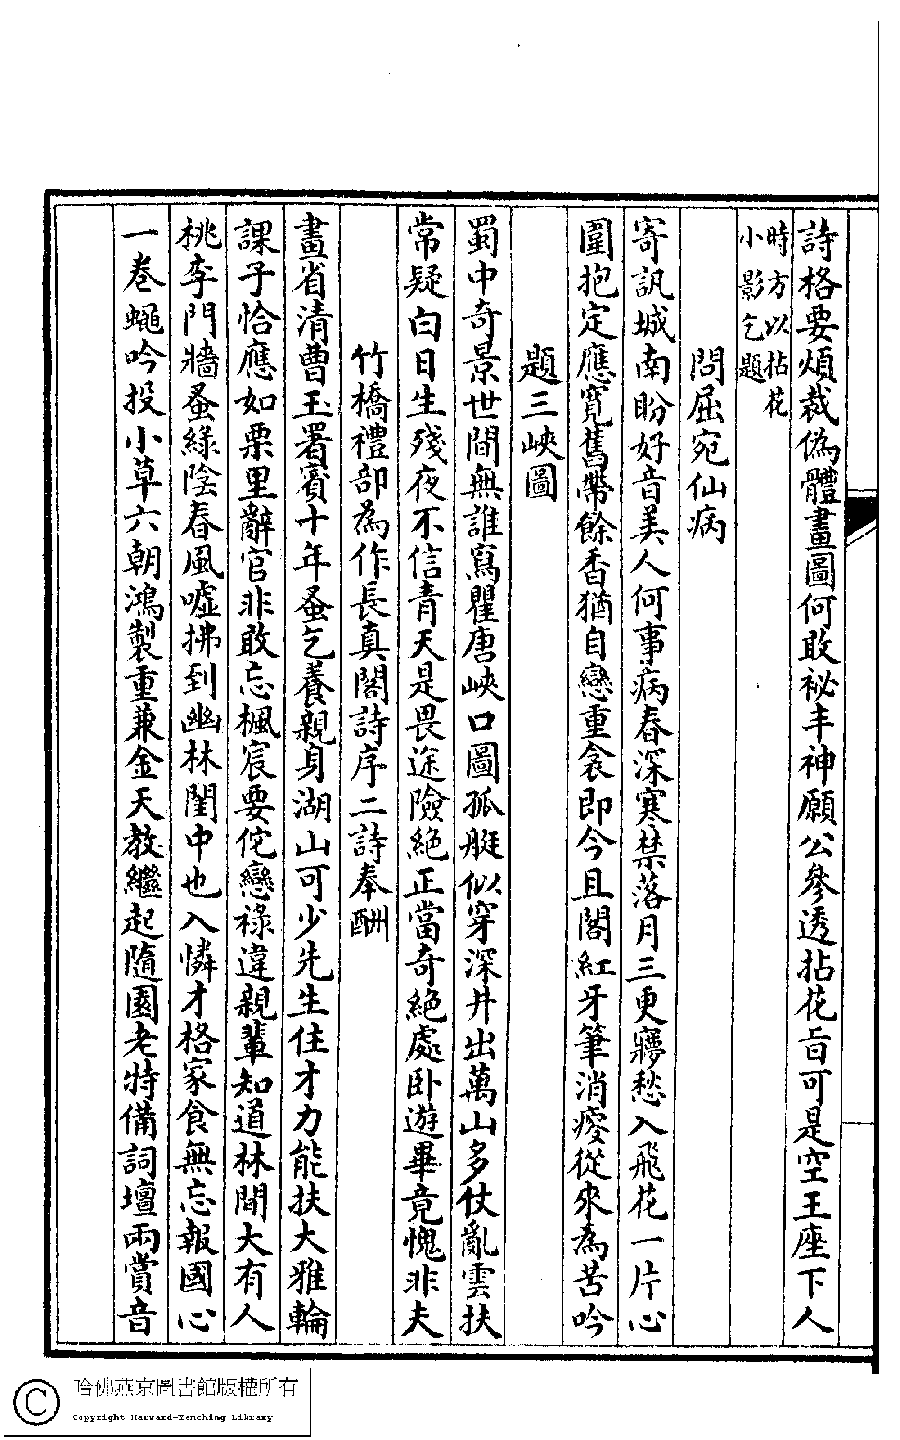 詩格要煩裁偽體畫圖何敢祕丰神願公參透拈花旨可是空王座下人
時方以拈花
小影乞題
問屈宛仙病
寄訊城南盼好音美人何事病春深寒禁落月三更寢愁入飛花一片心
圍抱定應寬舊帶餘香猶自戀重衾即今且閣紅牙筆消瘦從來為苦吟
題三峽圖
蜀中奇景世間無誰寫瞿唐峽口圖孤艇似穿深井出萬山多仗亂雲扶
常疑白日生殘夜不信青天是畏途險絕正當奇絕處臥遊畢竟愧非夫
竹橋禮部為作長真閣詩序二詩奉酬
畫省清曹玉署賓十年蚤乞養親身湖山可少先生住才力能扶大雅輪
課子恰應如栗里辭官非敢忘楓宸要侘戀祿違親輩知道林間大有人
桃李門牆蚤綠陰春風噓拂到幽林閨中也入憐才格家食無忘報國心
一卷蠅吟投小草六朝鴻製重兼金天教繼起隨園老特備詞壇兩賞音
哈佛燕京圖書館版權所有
Copyright Harvard-Yenching Library